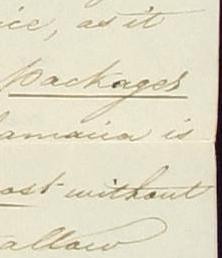 ice, as it
Packages
Jamaica is
ost without
allow